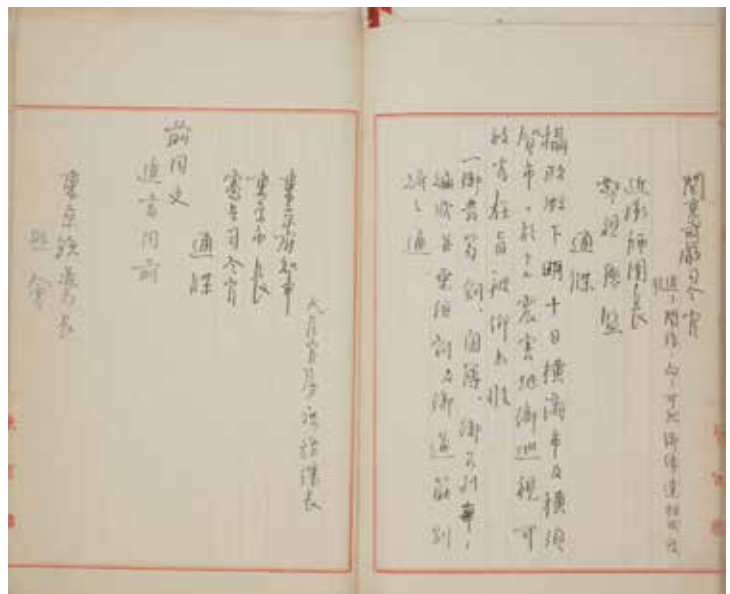 関東戒厳司令官
近衛師団長
警視総監
通牒
摂政殿下明十日横浜市及横須
賀市ニ於ケル震害地御巡視可
被為在旨被仰出候
一御発着割、鹵簿、御召列車ノ
編成並乗組割及御道筋別
紙之通
課長
東京府知事
東京市長
憲兵司令官
通牒
前同文
追書同前
東京鉄道局長
照会